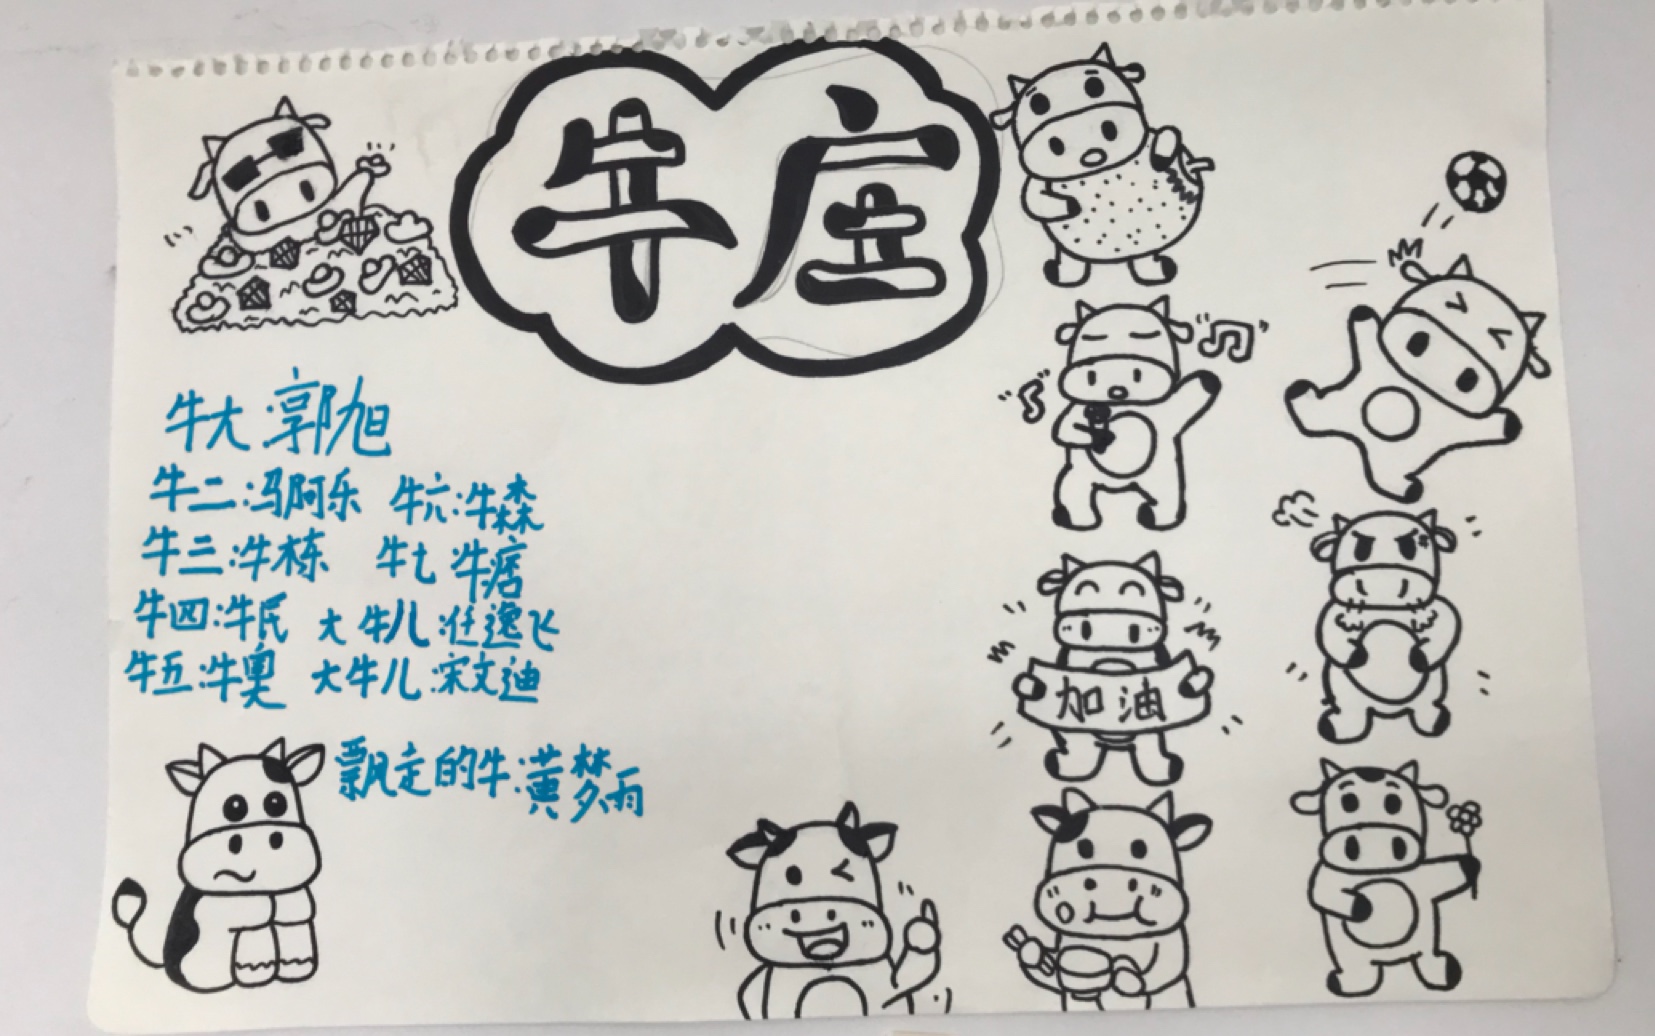 牛庄
牛大:郭旭
牛二:马阿乐 牛六:牛森
牛三:牛栋 牛七:牛痞
牛四:牛民 大牛儿:任逸飞
牛五:牛奥 大牛儿:宋文迪
飘定的牛:黄梦雨
加油